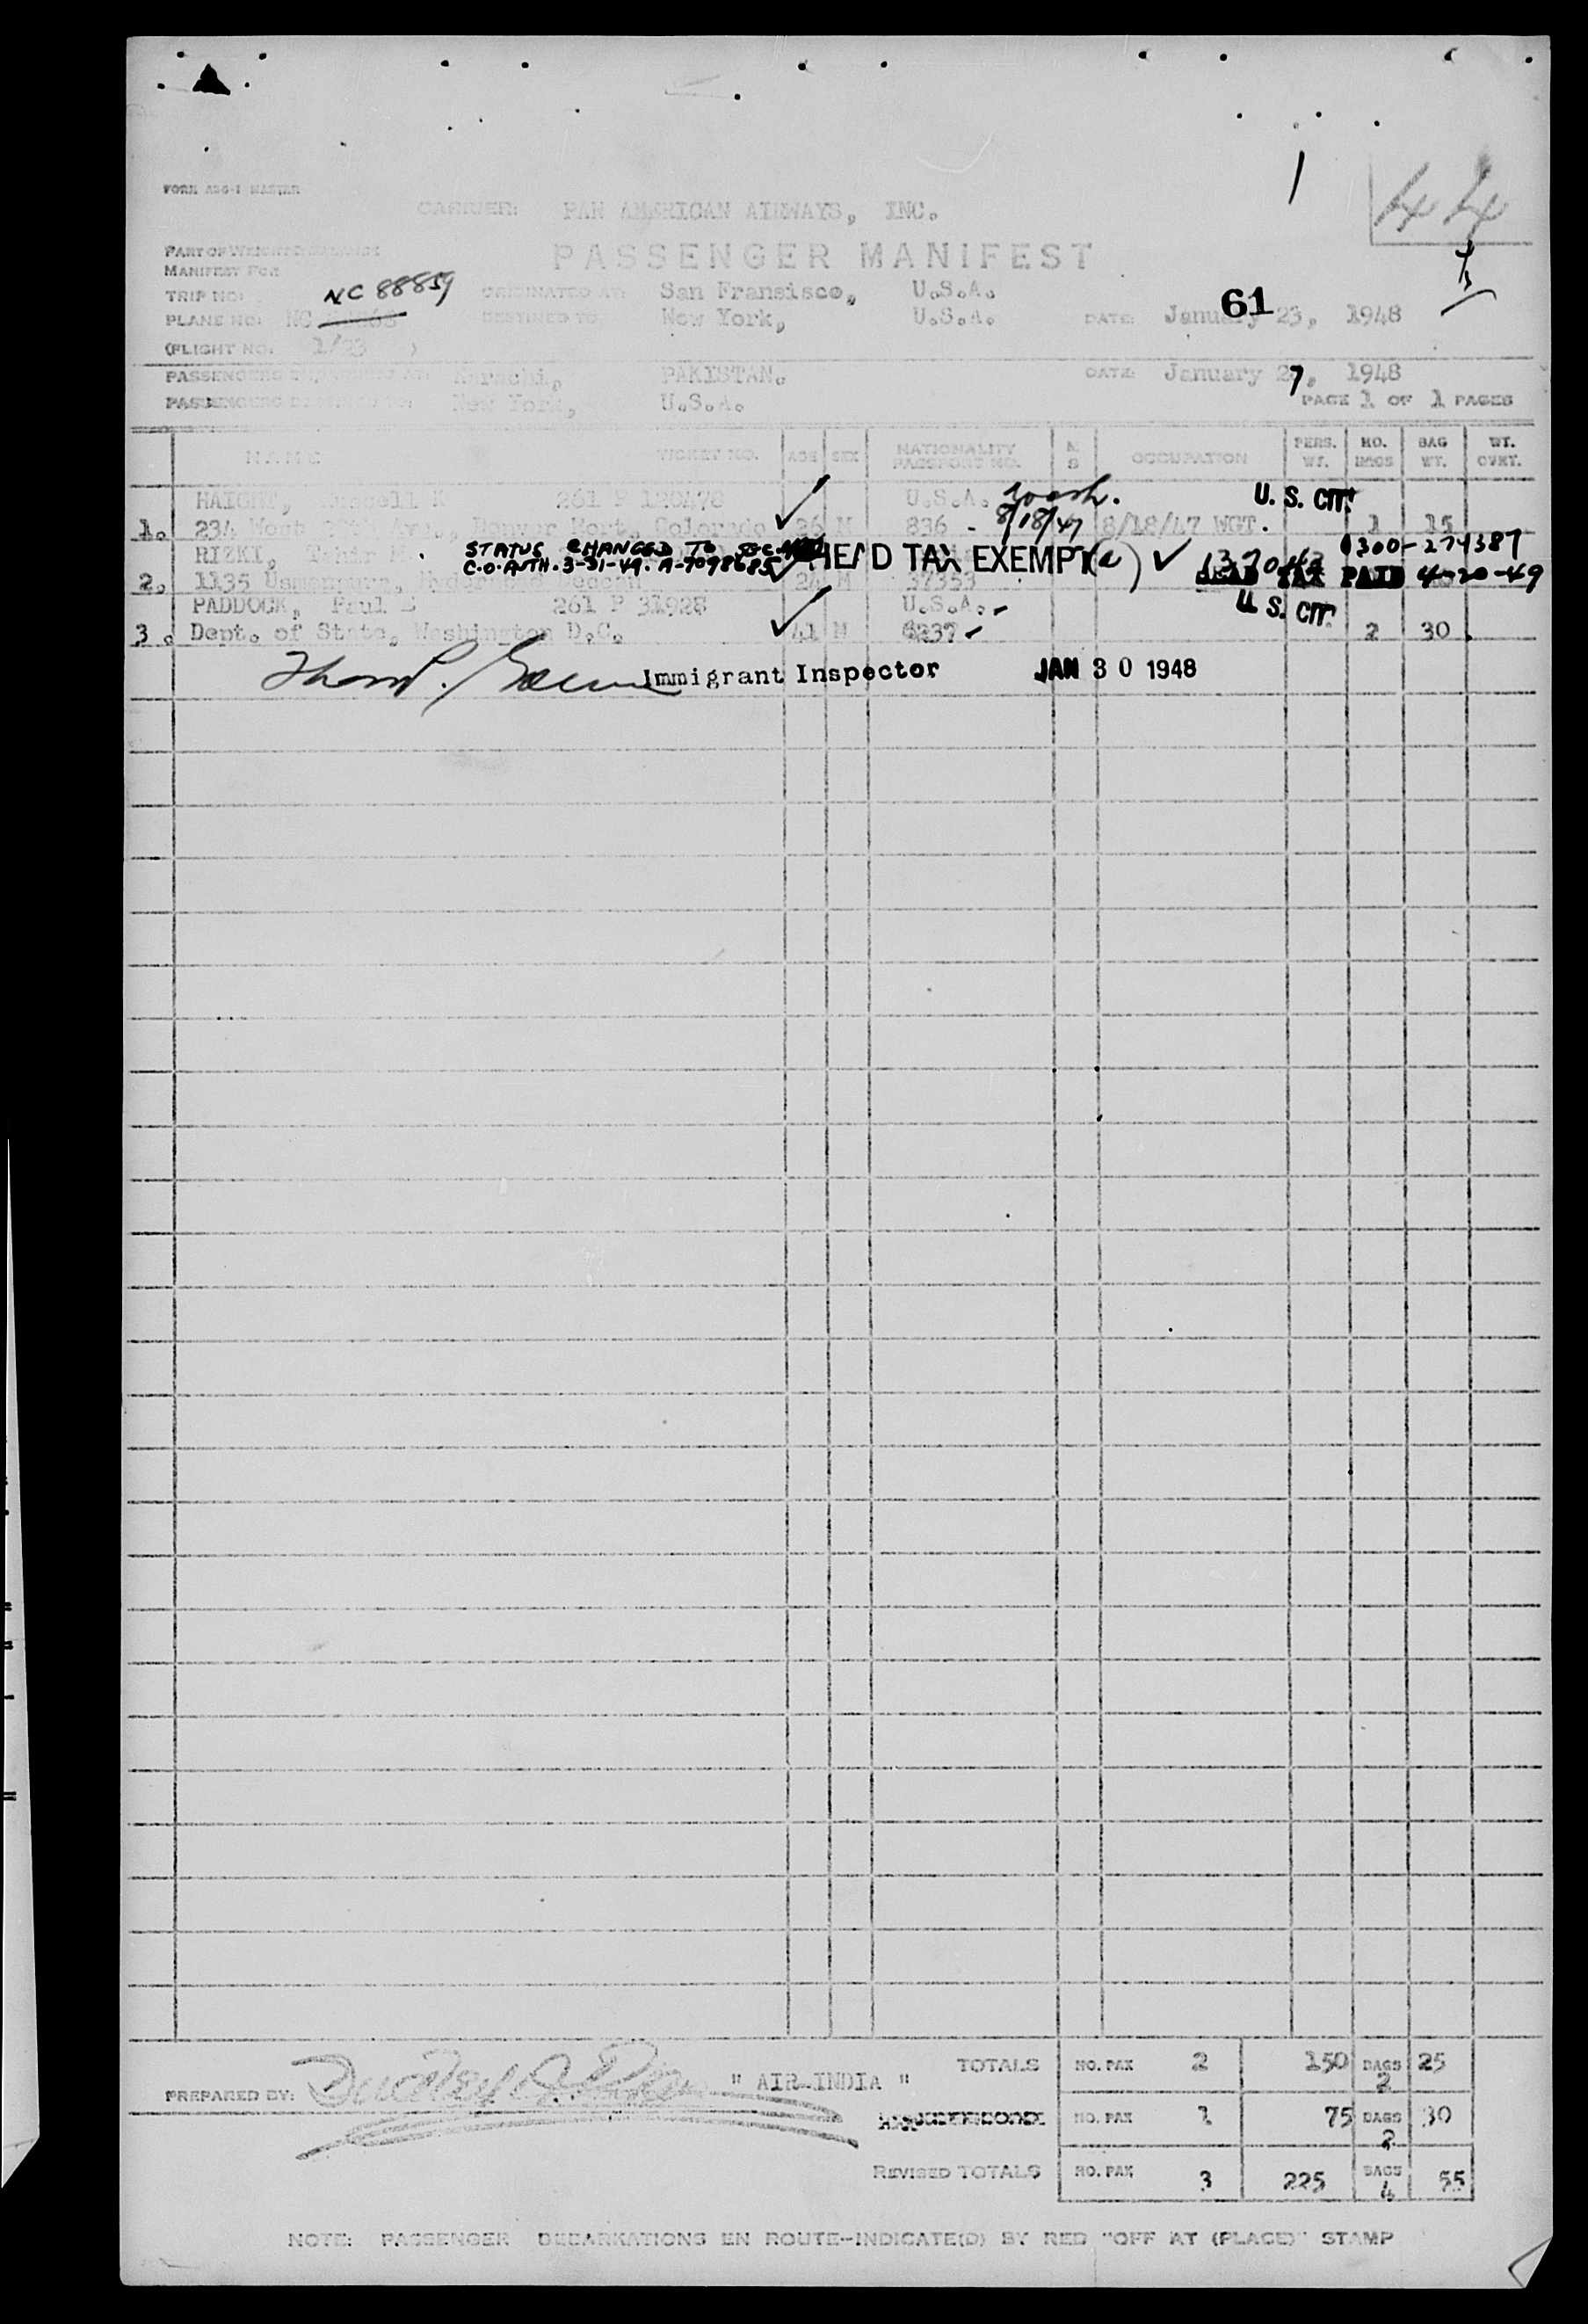 FORM
CARRIER: PAN AMERICAN AIRWAYS, INC.
44
PASSENGER MANIFEST
PART OF WEIGHT
MANIFEST FOR
TRIP NO: NC 88859 ORIGINATED AT: San Fransisco, U.S.A. 61
PLANE NO: NC DESTINED TO: New York, U.S.A. DATE: January 23, 1948
(FLIGHT NO. 1/23 )
PASSENGERS Karachi, PAKISTAN. DATE: January 27, 1948
PASSENGERS New York, U.S.A. PAGE 1 OF 1 PAGES
NAME TICKET NO. AGE SEX NATIONALITY PASSPORT NO. M S OCCUPATION PERS. WT. NO. BAGS BAG WT. WT. OVRT.
HAIGHT, K 261 P 120478 U.S.A. Wash. U.S. CIT.
1. 234 West Ave., Denver Colorado 26 M 836 - 8/18/47 8/18/47 WGT. 1 15
RIZKI, Tahir STATUS CHANGED TO HEAD TAX EXEMPT 0300-274387
C.O. AUTH. 3-31-49. A-7098685
2. 1135 24 M 37353 HEAD TAX PAID 4-20-49
PADDOCK, Paul E 261 P 31928 U.S.A. U.S. CIT.
3. Dept. of State, Washington D.C. 41 M 6237 2 30
Immigrant Inspector JAN 30 1948
TOTALS NO. PAX 2 150 BAGS 2 25
PREPARED BY: " AIR-INDIA "
NO. PAX 1 75 BAGS 2 30
REVISED TOTALS NO. PAX 3 225 BAGS 4 55
NOTE: PASSENGER DEBARKATIONS EN ROUTE-INDICATE(D) BY RED "OFF AT (PLACE)" STAMP